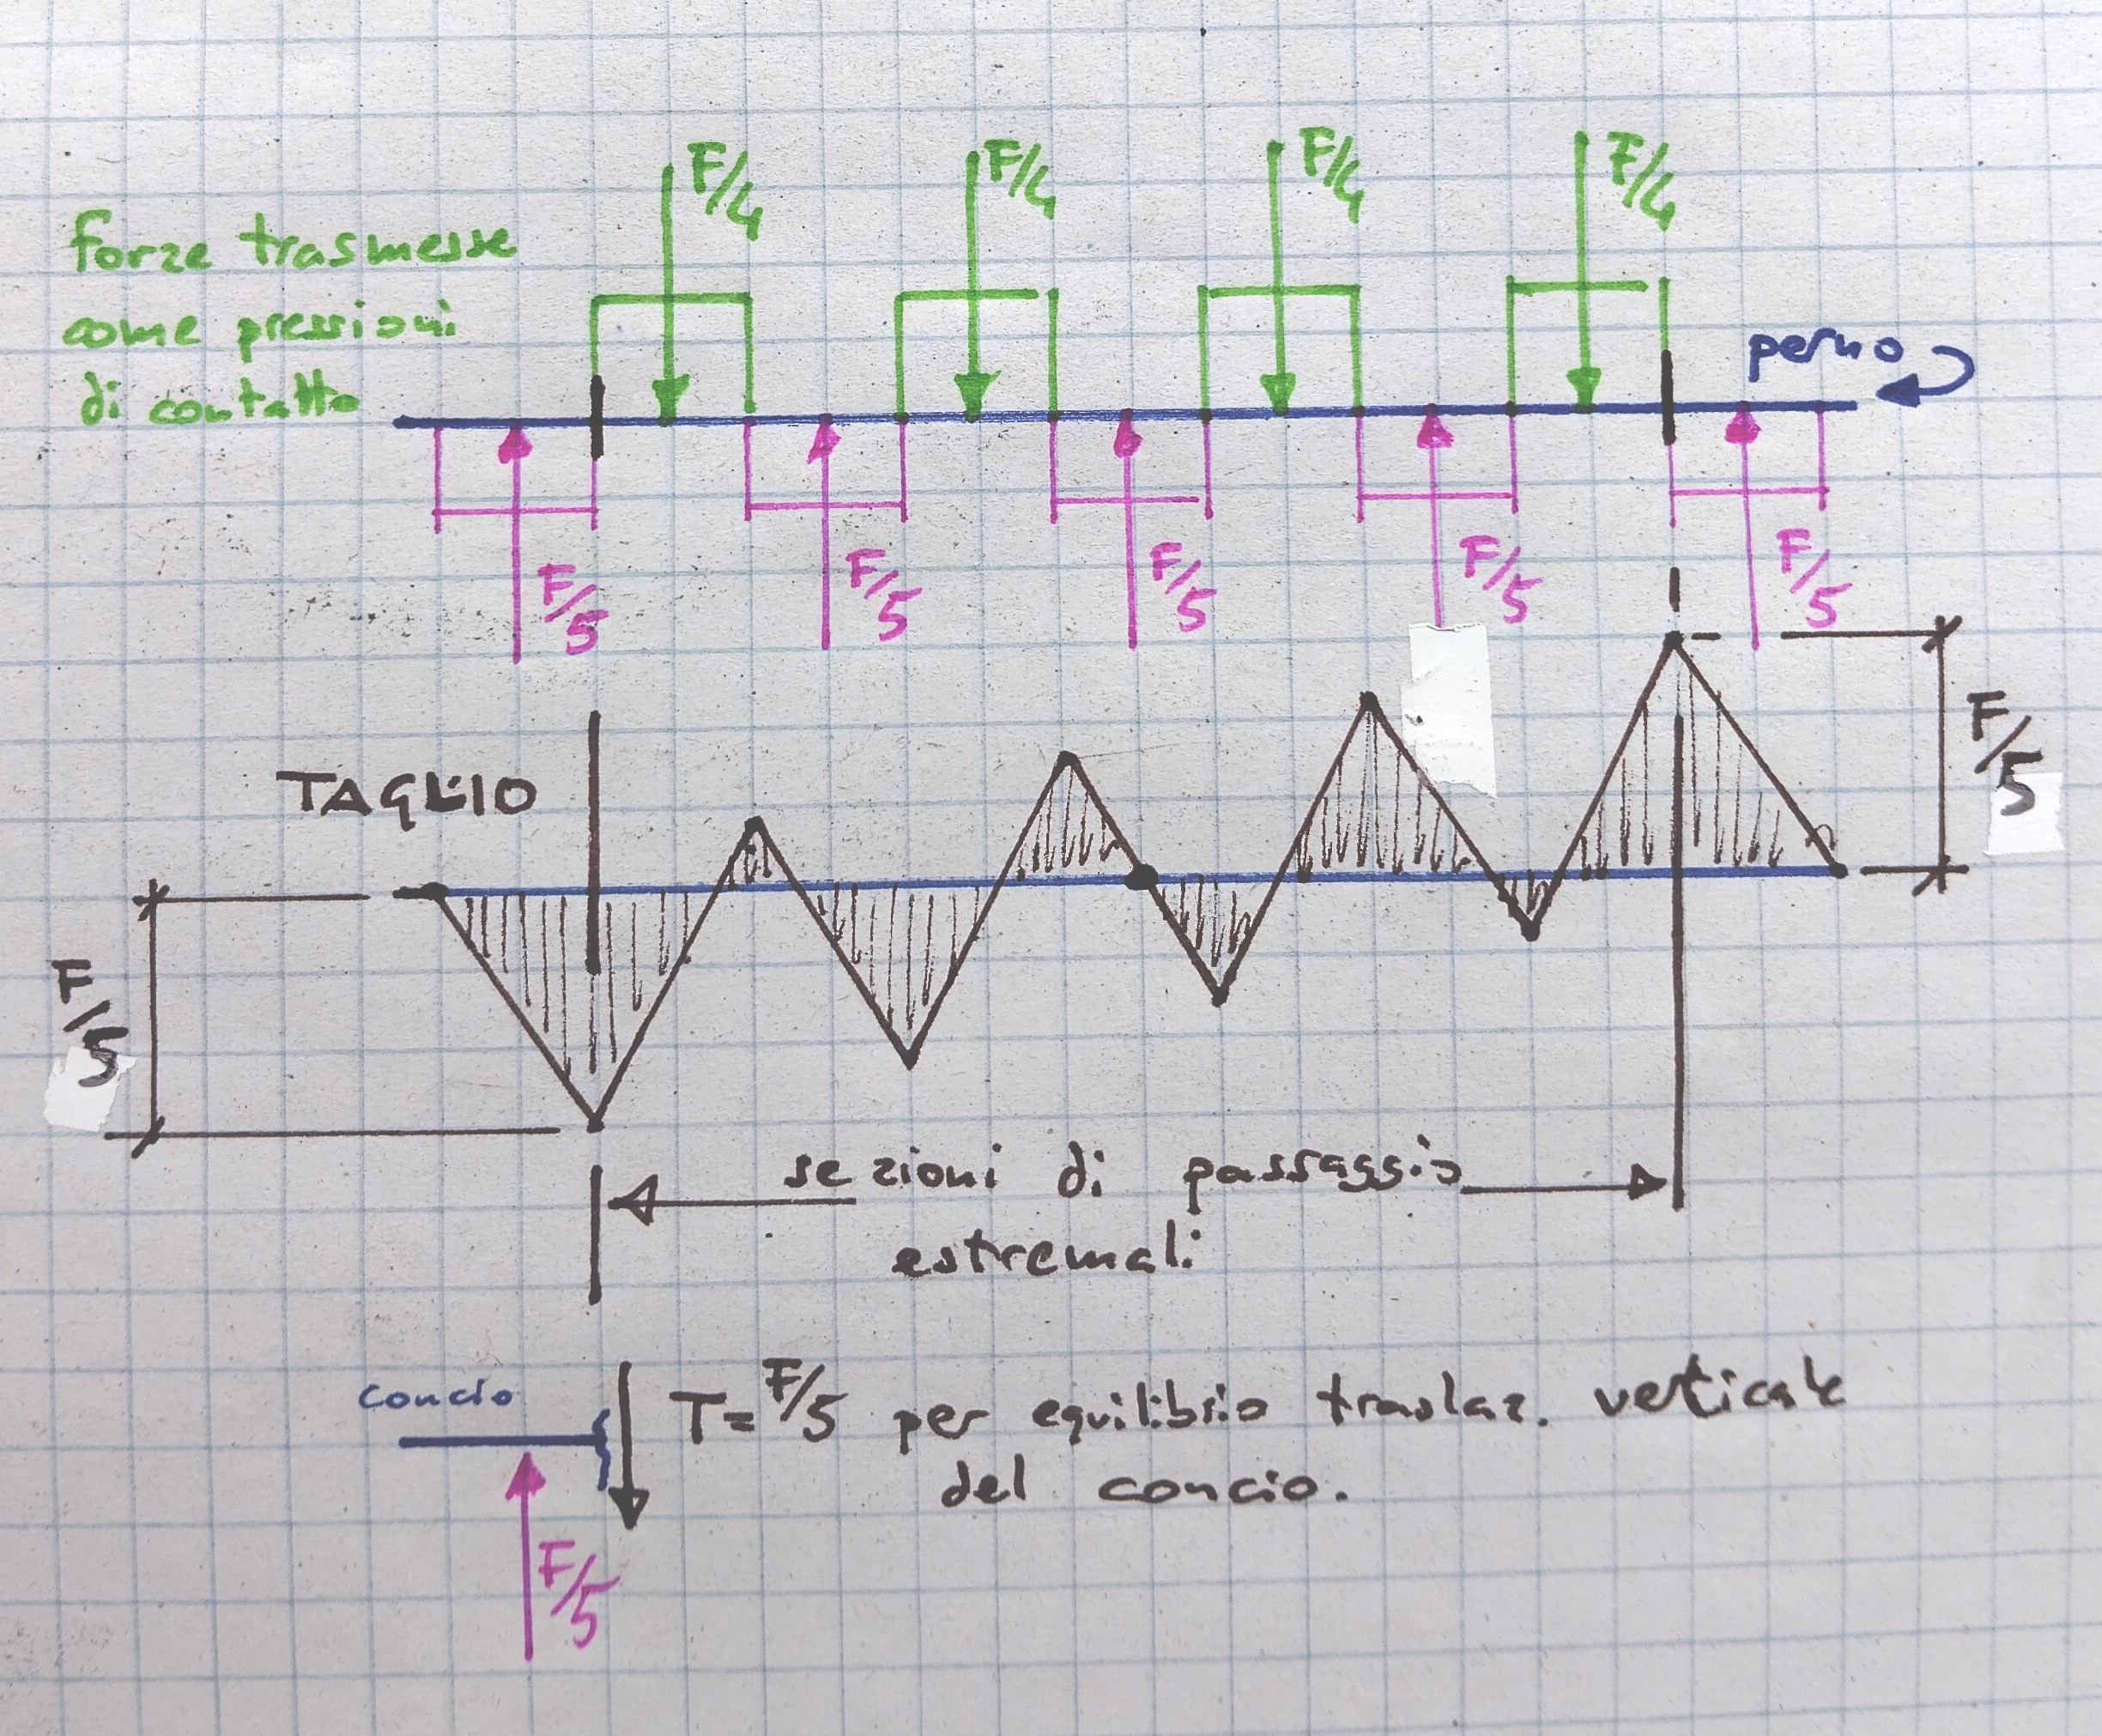 F/4 F/4 F/4 F/4
forze trasmesse
come pressioni
di contatto
perno
F/5 F/5 F/5 F/5 F/5
TAGLIO
F/5
F/5
sezioni di passaggio
estremali
concio
T=F/5 per equilibrio traslaz. verticale
del concio.
F/5